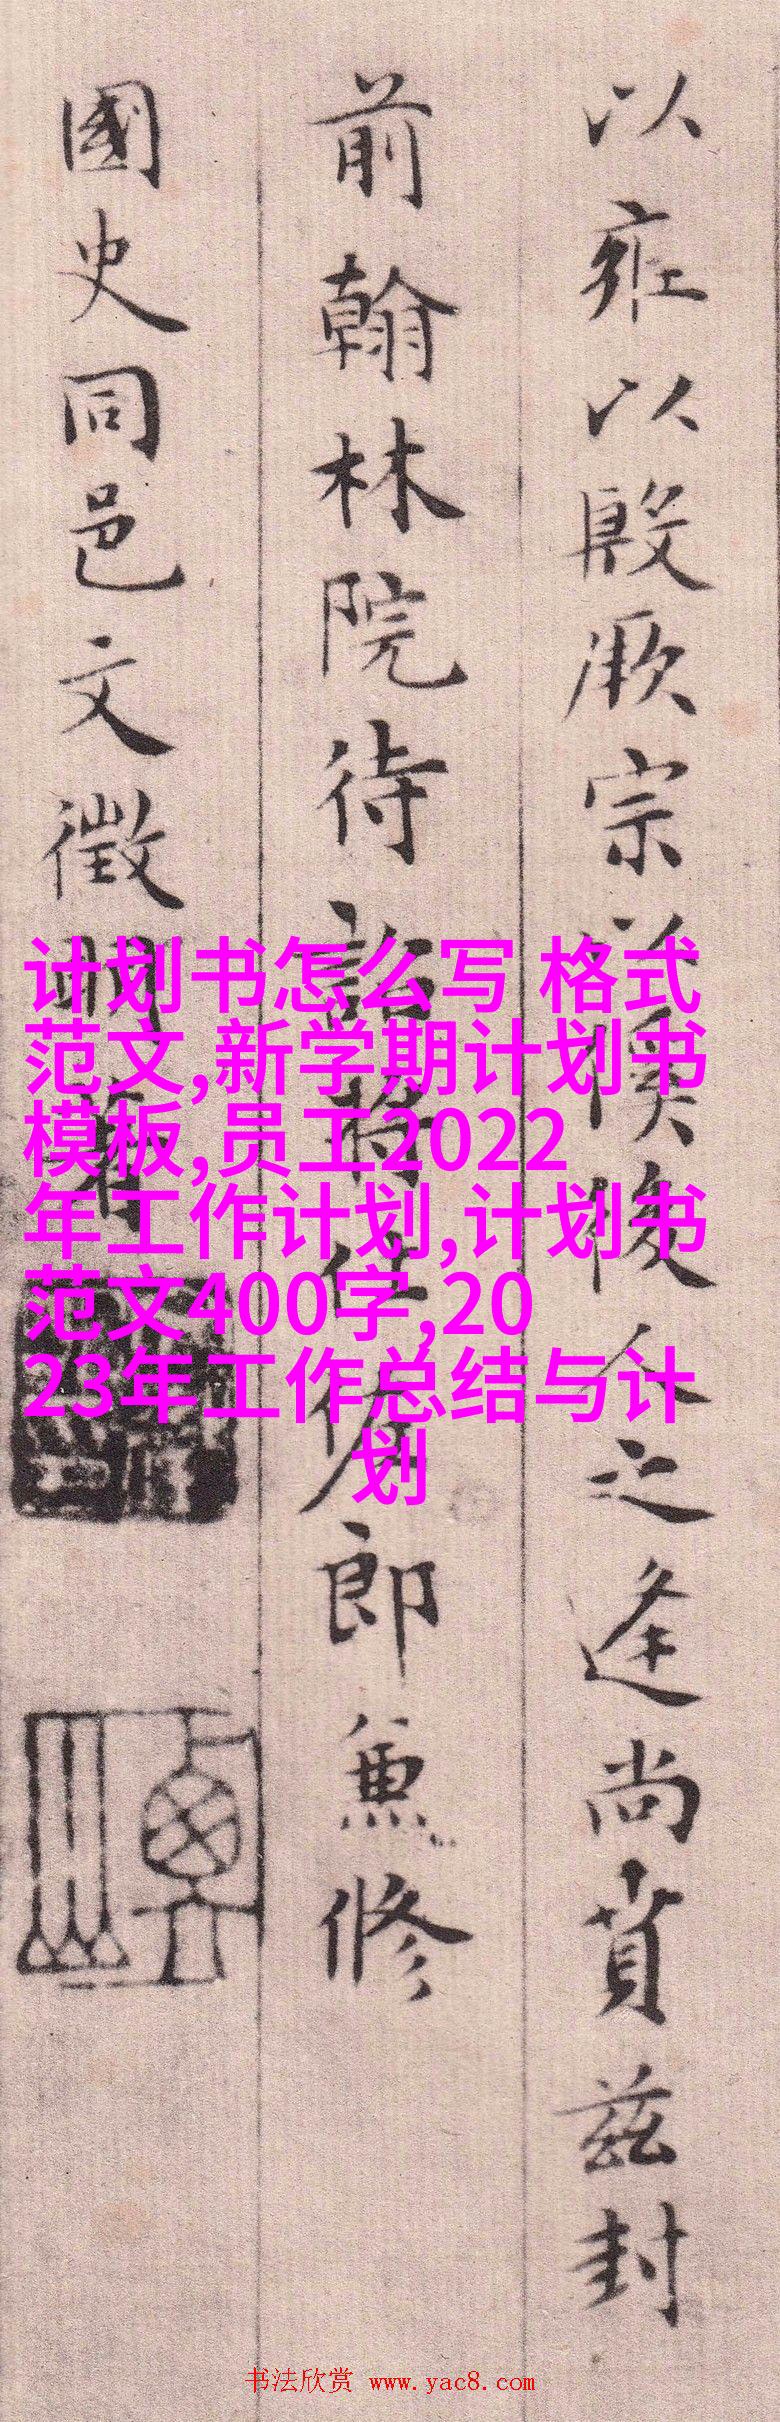 以雍以殷厥宗以傒後人之逢尚賁茲封
前翰林院待詔將仕佐郎兼修
國史同邑文徵明書
计划书怎么写 格式
范文,新学期计划书
模板,员工2022
年工作计划,计划书
范文400字,20
23年工作总结与计
划
书法欣赏 www.yac8.com